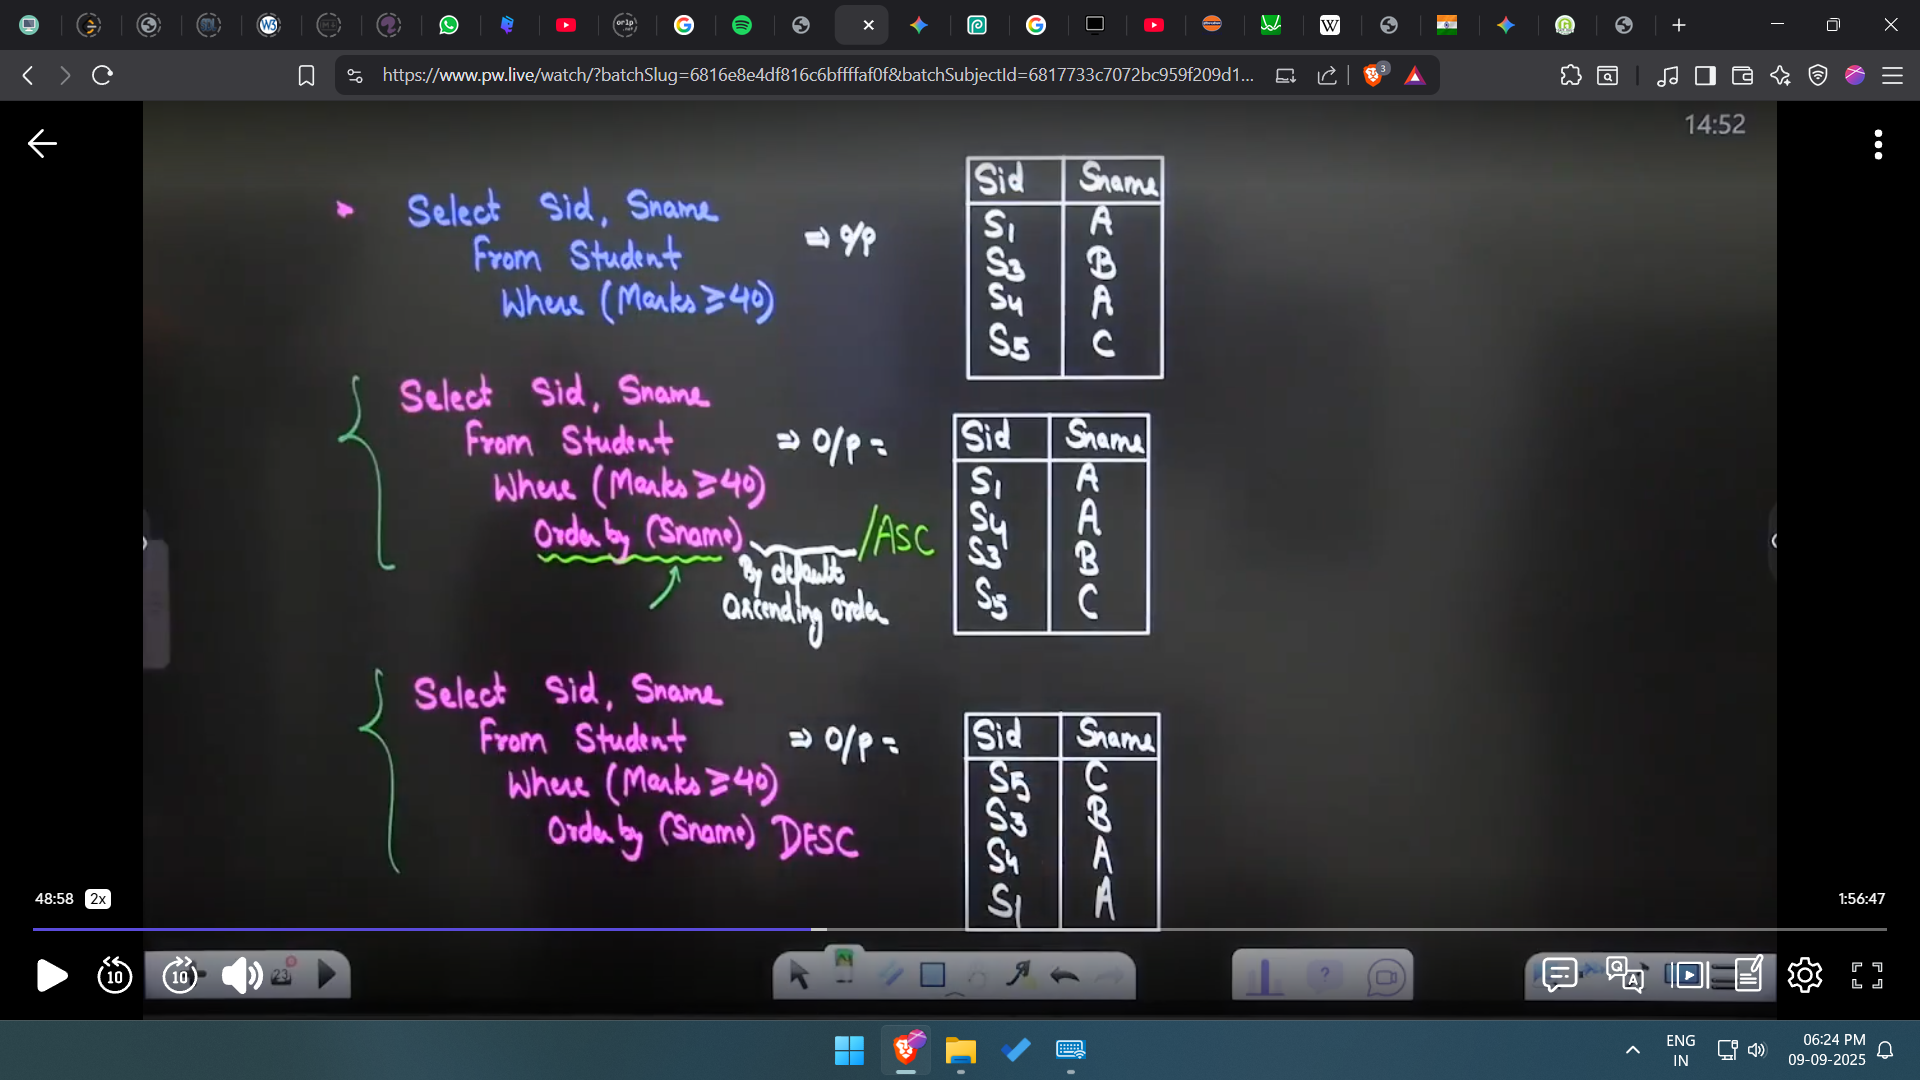 https://www.pw.live/watch/?batchSlug=6816e8e4df816c6bffffaf0f&batchSubjectId=6817733c7072bc959f209d1...
3
14:52
Select Sid, Sname
From Student
Where (Marks ≥ 40)
⇒ o/p
Sid Sname
S1 A
S3 B
S4 A
S5 C
Select Sid, Sname
From Student
Where (Marks ≥ 40)
Order by (Sname) /ASC
By default
ascending order
⇒ O/P =
Sid Sname
S1 A
S4 A
S3 B
S5 C
Select Sid, Sname
From Student
Where (Marks ≥ 40)
Order by (Sname) DESC
⇒ O/P =
Sid Sname
S5 C
S3 B
S4 A
S1 A
48:58 2x
1:56:47
10 10
23
ENG
IN
06:24 PM
09-09-2025